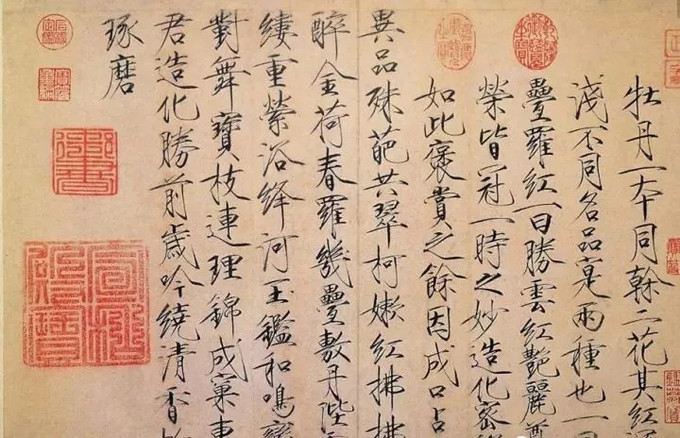 牡丹一本同幹二花其紅深
淺不同名品寔兩種也一
疊羅紅一曰勝雲紅艷麗尊
榮皆冠一時之妙造化密
如此褒賞之餘因成口占
異品殊葩共翠柯嫩紅拂拂
醉金荷春羅幾疊敷丹陛
縷重縈浴絳河玉鑑和鳴鸞
對舞寶枝連理錦成窠東
君造化勝前歲吟繞清香
琢磨